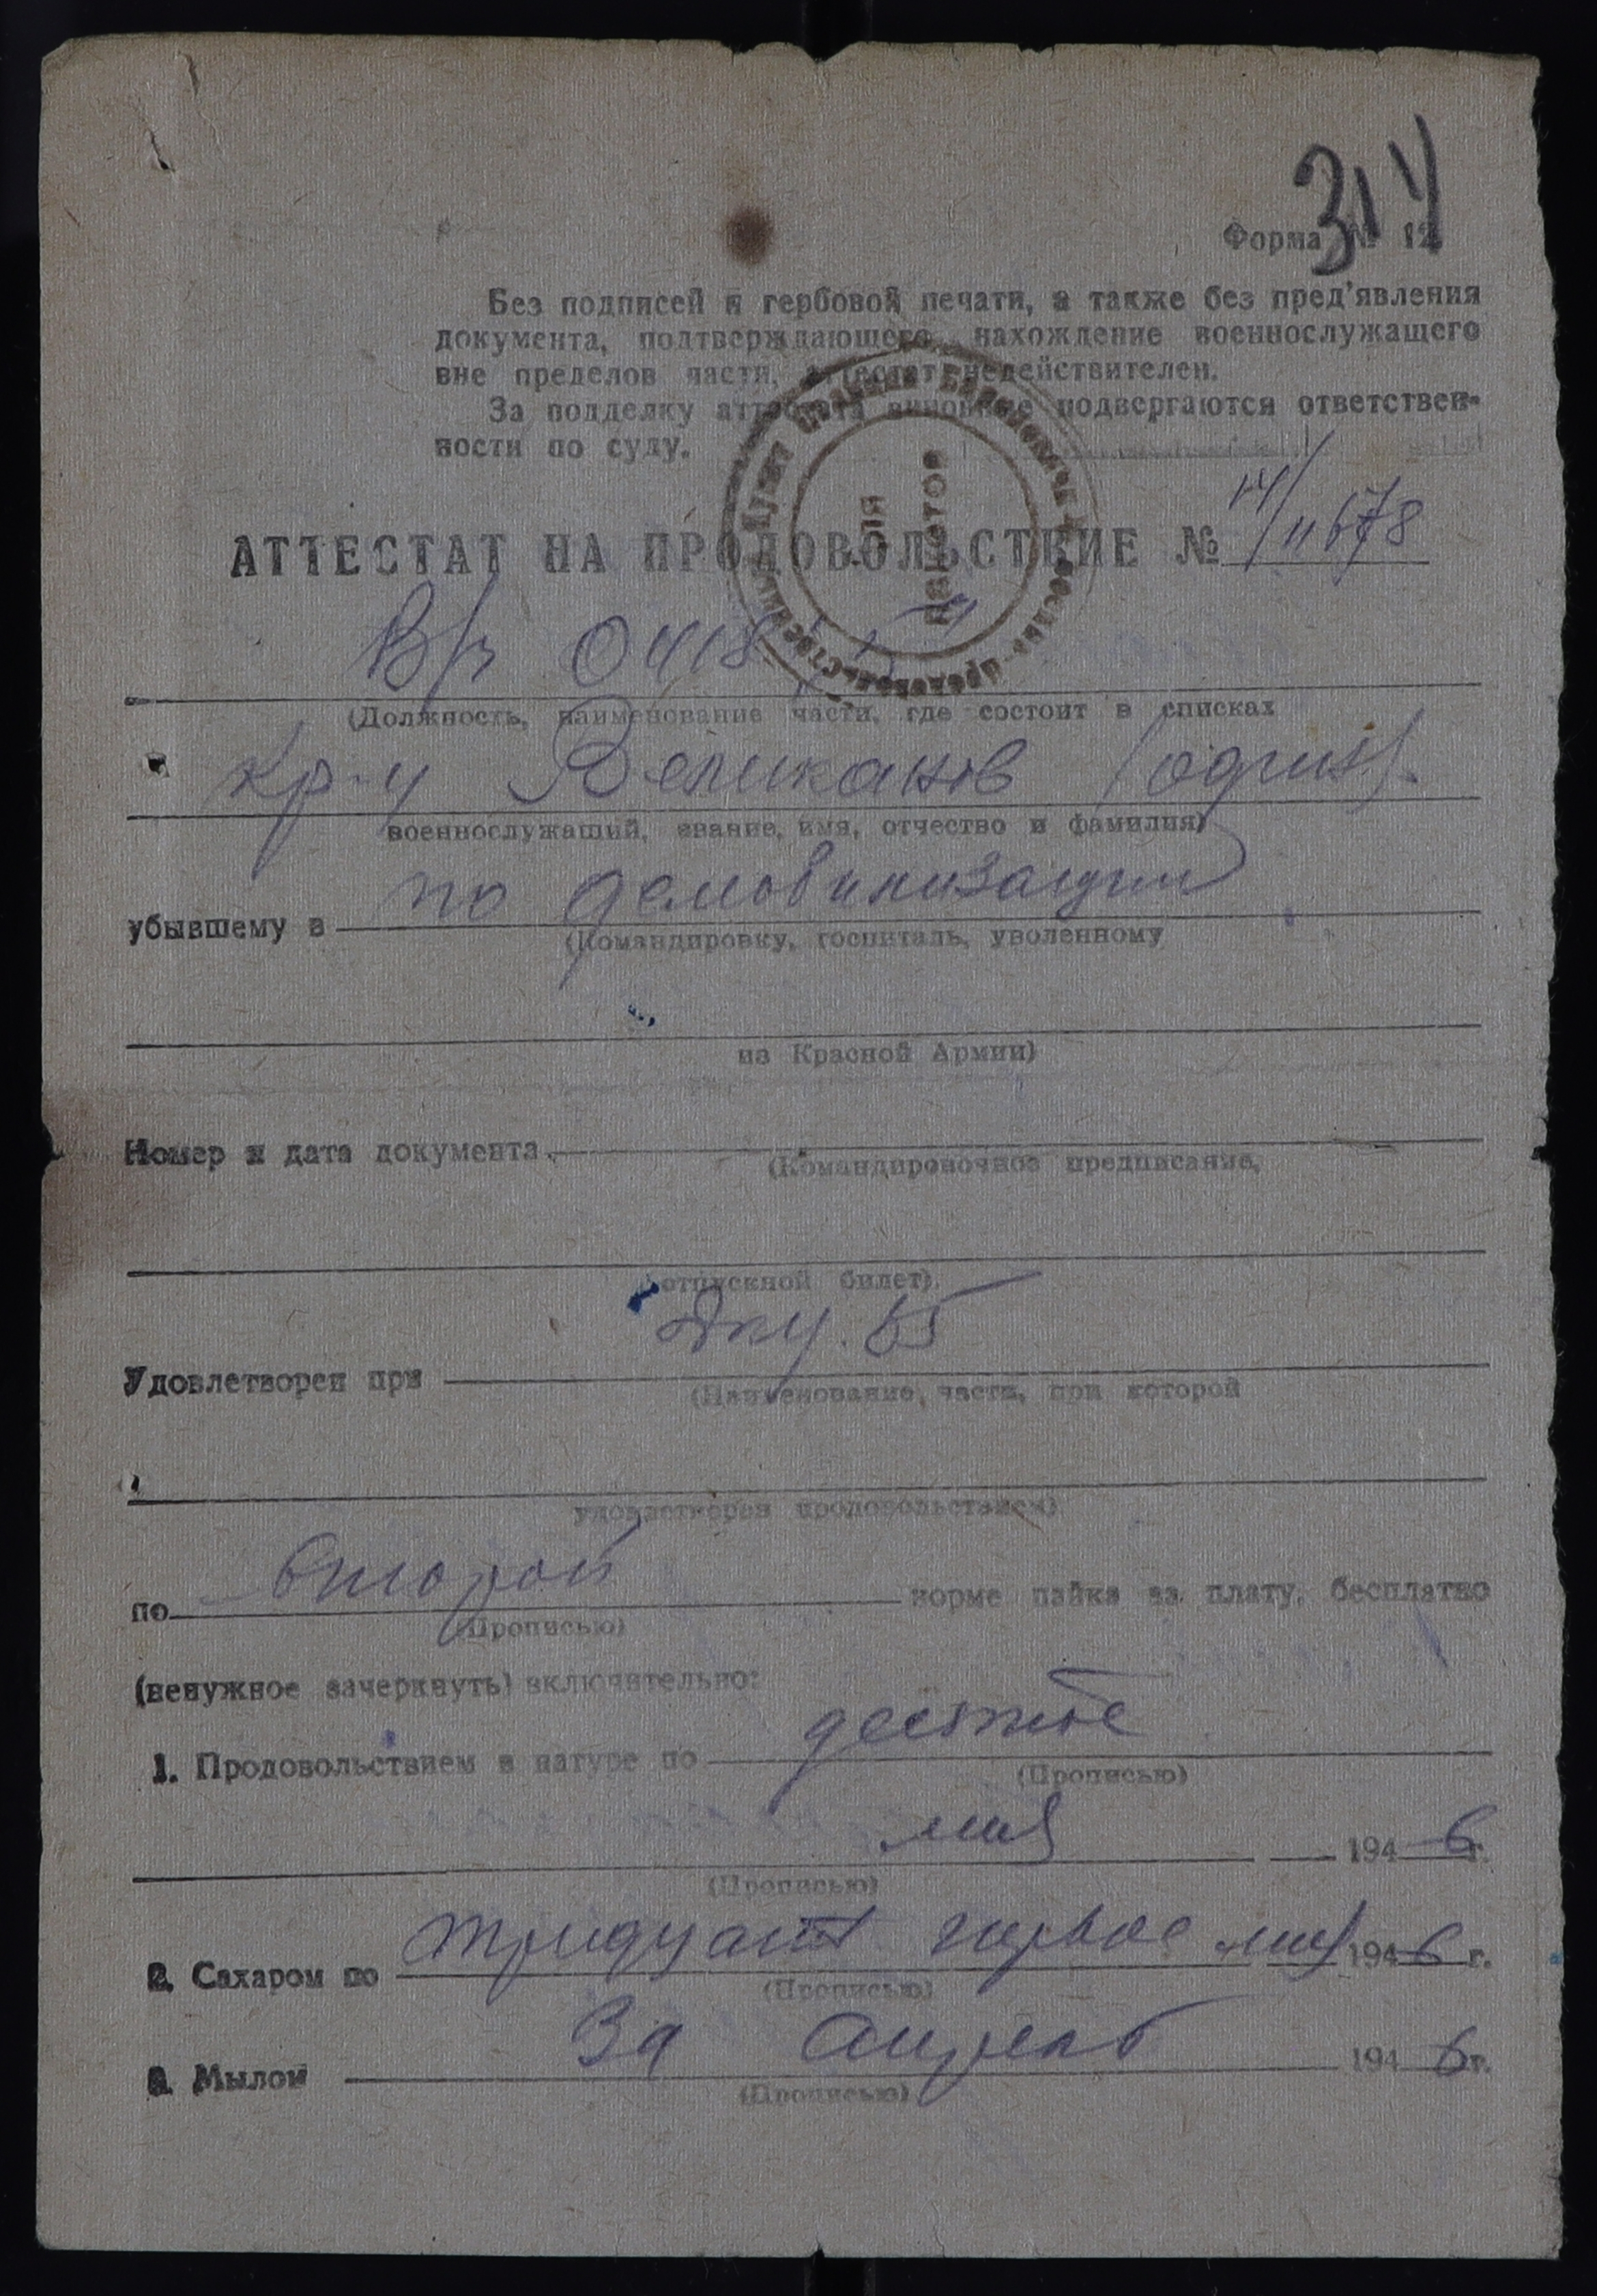 314
Форма № 12
Без подписей и гербовой печати, а также без пред'явления
документа, подтверждающего нахождение военнослужащего
вне пределов части, аттестат недействителен.
За подделку аттестата виновные подвергаются ответствен-
ности по суду.
АТТЕСТАТ НА ПРОДОВОЛЬСТВИЕ № 14/11678
для пакетов
В/ч 0418
(Должность, наименование части, где состоит в списках
кр-ц Великанов (один).
военнослужащий, звание, имя, отчество и фамилия)
убывшему в по демобилизации
(Командировку, госпиталь, уволенному
из Красной Армии)
Номер и дата документа
(Командировочное предписание,
отпускной билет).
Удовлетворен при 65
(Наименование, части, при которой
удовлетворен продовольствием)
по второй норме пайка за плату, бесплатно
(Прописью)
(ненужное зачеркнуть) включительно:
1. Продовольствием в натуре по десятое
(Прописью)
мая 1946 г.
(Прописью)
2. Сахаром по тридцать первое мая 1946 г.
(Прописью)
3. Мылом За апрель 1946 г.
(Прописью)